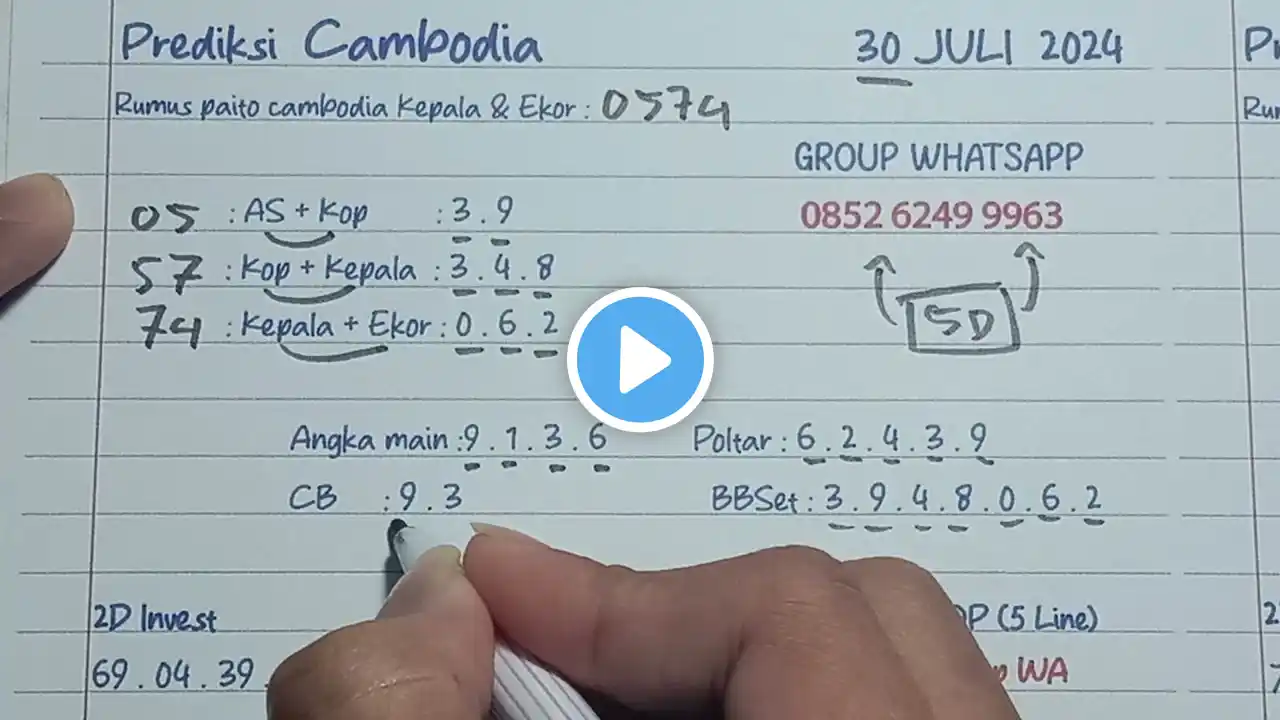 Prediksi Cambodia
30 JULI 2024
Rumus paito cambodia Kepala & Ekor : 0574
GROUP WHATSAPP
0852 6249 9963
05 : AS + Kop : 3 . 9
57 : Kop + Kepala : 3 . 4 . 8
74 : Kepala + Ekor : 0 . 6 . 2
5D
Angka main : 9 . 1 . 3 . 6
Poltar : 6 . 2 . 4 . 3 . 9
CB : 9 . 3
BBSet : 3 . 9 . 4 . 8 . 0 . 6 . 2
2D Invest
(5 Line)
69 . 04 . 39
WA